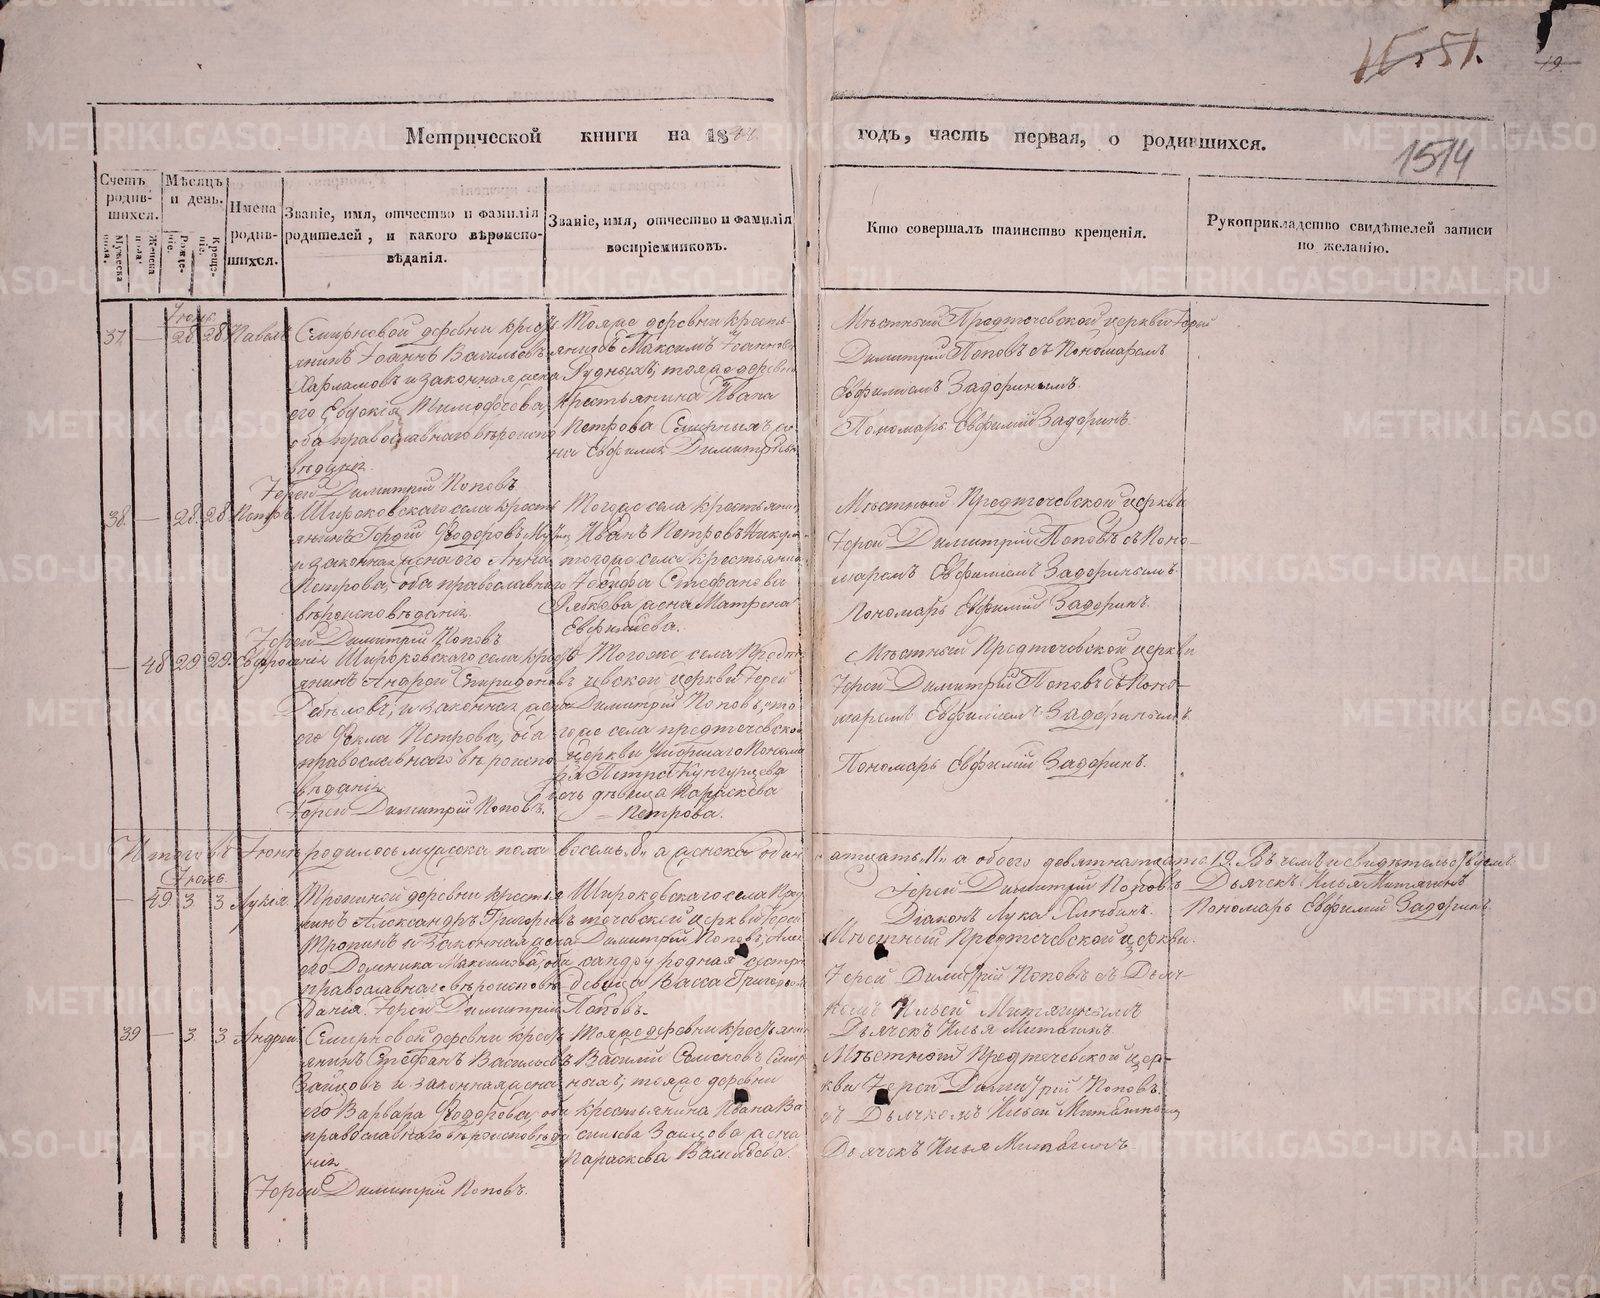 15 51.
19
Метрической книги на 1844. годъ, часть первая, о родившихся.
1514
Счетъ родившихся.
Мужеска пола.
Женска пола.
Мѣсяцъ и день.
Рожденіе.
Крещеніе.
Имена родившихся.
Званіе, имя, отчество и фамилія родителей, и какого вѣроисповѣданія.
Званіе, имя, отчество и фамилія воспріемниковъ.
Кто совершалъ таинство крещенія.
Рукоприкладство свидѣтелей записи по желанію.
Іюнь
37. — 28. 28 Павелъ
Смирновой деревни кресть
янинъ Іоаннъ Васильевъ
Харламовъ и законная жена
его Евдокія Тимофеева,
оба православнаго вѣроиспо
вѣданія.
Іерей Димитрій Поповъ
Тояже деревни кресть-
янинъ Максимъ Іоанновъ
Рудныхъ, тояже деревни
крестьянина Ивана
Петрова Смирныхъ же
на Евфимія Димитріева
Мѣстный Предтечевской церкви Іерей
Димитрій Поповъ съ Пономаремъ
Евфиміемъ Задоринымъ.
Пономарь Евфимій Задоринъ.
38. — 28. 28 Петръ
Широковскаго села кресть
янинъ Гордій Ѳодоровъ
и законная жена его Анна
Петрова, оба православнаго
вѣроисповѣданія.
Іерей Димитрій Поповъ
Тогоже села крестьянинъ
Иванъ Петровъ
тогоже села крестьянина
Іосифа Стефанова
Рябкова жена Матрена
Евфимиева.
Мѣстный Предтечевской церкви
Іерей Димитрій Поповъ съ Поно-
маремъ Евфиміемъ Задоринымъ
Пономарь Евфимій Задоринъ.
— 48 29 29. Евфросинія
Широковскаго села кресть
янинъ Андрей Спиридоновъ
и законная жена
его Ѳекла Петрова, оба
православнаго вѣроиспо
вѣданія
Іерей Димитрій Поповъ.
Тогоже села Предте
чевской церкви Іерей
Димитрій Поповъ, то
гоже села предтечевской
церкви умершаго Понома
ря Петра Кунгурцева
дочь дѣвица Параскева
Петрова.
Мѣстный Предтечевской церкви
Іерей Димитрій Поповъ съ Поно-
маремъ Евфиміемъ Задоринымъ.
Пономарь Евфимій Задоринъ.
Итого въ Іюнѣ родилось мужеска пола восемь „8„ а женска один
атцать „11„ а обоего девятнатцать 19. Въ чемъ и свидѣтельствуемъ
Іерей Димитрій Поповъ
Діаконъ Лука Хлѣбинъ.
Дьячекъ Илья Митягинъ
Пономарь Евфимій Задоринъ.
Іюль.
— 49 3 3 Лукія
Тропиной деревни крестья
нинъ Александръ Григорьевъ
Тропинъ и законная жена
его Домника Максимова, оба
православнаго вѣроисповѣ
данія. Іерей Димитрій Поповъ.
Широковскаго села Пред
течевской церкви Іерей
Димитрій Поповъ, Алек
сандру родная сестра
девица Васса Григорьева
Мѣстный Предтечевской церкви
Іерей Димитрій Поповъ съ Дьяч
комъ Ильей Митягинымъ
Дьячекъ Илья Митягинъ
39 — 3. 3 Андрей
Смирновой деревни кресть
янинъ Стефанъ Васильевъ
Зайцовъ и законная жена
его Варвара Ѳодорова, оба
православнаго вѣроисповѣда
нія.
Іерей Димитрій Поповъ.
Тояже деревни крестьянин
Василій Семеновъ Смир
ныхъ, тояже деревни
крестьянина Ивана Ва
сильева Заицова жена
Параскева Васильева.
Мѣстной Предтечевской цер-
кви Іерей Димитрій Поповъ
съ Дьячкомъ Ильей Митягиным
Дьячекъ Илья Митягинъ
METRIKI.GASO-URAL.RU